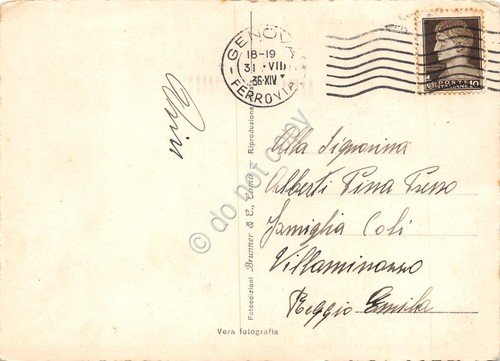 GENOVA
18-19
31 · VII
36·XIV
FERROVIA
10
Alla Signorina
Alberti Pina Presso
famiglia Coli
Villaminozzo
Reggio Emilia
Fotoedizioni Brunner & C., Como
Riproduzione
Vera fotografia
do not copy